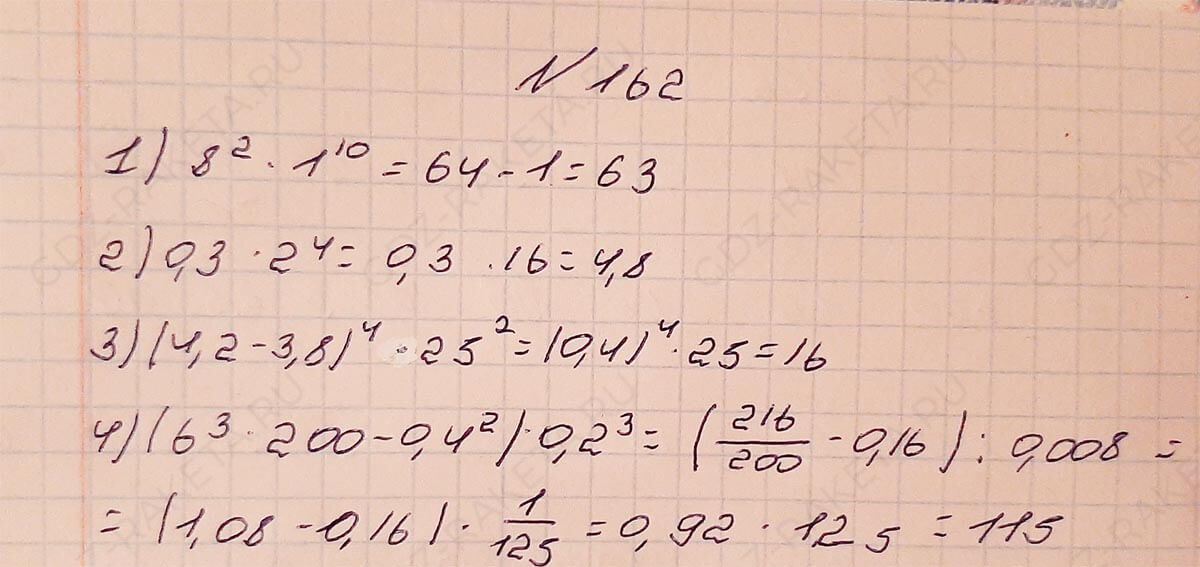 N 162
1) 8² · 1¹⁰ = 64 - 1 = 63
2) 0,3 · 2⁴ = 0,3 · 16 = 4,8
3) (4,2 - 3,8)⁴ · 25² = (0,4)⁴ · 25 = 16
4) (6³ · 200 - 0,4²) · 0,2³ = (216/200 - 0,16) : 0,008 =
= (1,08 - 0,16) · 1/125 = 0,92 · 125 = 115
GDZ-RAKETA.RU